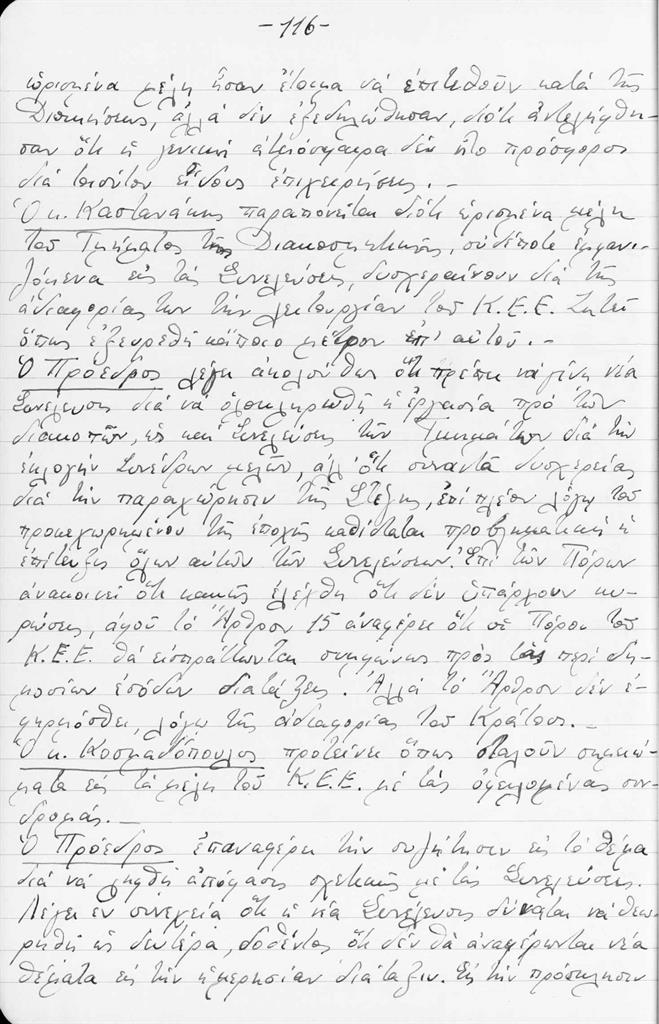 -116-
ὡρισμένα μέλη ἦσαν ἕτοιμα νά ἐπιτεθοῦν κατά τῆς
Διοικήσεως, ἀλλά δέν ἐξεδηλώθησαν, διότι ἀντελήφθη-
σαν ὅτι ἡ γενική ἀτμόσφαιρα δέν ἦτο πρόσφορος
διά τοιοῦτον εἶδους ἐπιχειρήσεις. -
Ὁ κ. Καστανάκης παραπονεῖται διότι ὡρισμένα μέλη
τοῦ Τμήματος τῆς Διακοσμητικῆς, οὐδέποτε ἐμφανι-
ζόμενα εἰς τάς Συνελεύσεις, δυσχεραίνουν διά τῆς
ἀδιαφορίας των τήν λειτουργίαν τοῦ Κ.Ε.Ε. Ζητεῖ
ὅπως ἐξευρεθῆ κάποιο μέτρον ἐπ' αὐτοῦ. -
Ὁ Πρόεδρος λέγει ἀκολούθως ὅτι πρέπει νά γίνη νέα
Συνέλευσις διά νά ὁλοκληρωθῆ ἡ ἐργασία πρό τῶν
διακοπῶν, ὡς καί Συνελεύσεις τῶν Τμημάτων διά τήν
ἐκλογήν Συνέδρων μελῶν, ἀλλ' ὅτι συναντᾶ δυσχερείας
διά τήν παραχώρησιν τῆς Στέγης, ἐπί πλέον λόγω τοῦ
προκεχωρημένου τῆς ἐποχῆς καθίσταται προβληματική ἡ
ἐπίτευξις ὅλων αὐτῶν τῶν Συνελεύσεων. Ἐπί τῶν Πόρων
ἀνακοινεῖ ὅτι κακῶς ἐλέχθη ὅτι δέν ὑπάρχουν κυ-
ρώσεις, ἀφοῦ τό Ἄρθρον 15 ἀναφέρει ὅτι οἱ Πόροι τοῦ
Κ.Ε.Ε. θά εἰσπράττωνται συμφώνως πρός τάς περί δη-
μοσίων ἐσόδων διατάξεις. Ἀλλά τό Ἄρθρον δέν ἐ-
φηρμόσθει, λόγω τῆς ἀδιαφορίας τοῦ Κράτους. -
Ὁ κ. Κοσμαδόπουλος προτείνει ὅπως σταλοῦν σημειώ-
ματα εἰς τά μέλη τοῦ Κ.Ε.Ε. μέ τάς ὀφειλομένας συν-
δρομάς. -
Ὁ Πρόεδρος ἐπαναφέρει τήν συζήτησιν εἰς τό θέμα
διά νά ληφθῆ ἀπόφασις σχετικῶς μέ τάς Συνελεύσεις.
Λέγει ἐν συνεχεία ὅτι ἡ νέα Συνέλευσις δύναται νά θεω-
ρηθῆ ὡς δευτέρα, δοθέντος ὅτι δέν θά ἀναφέρωνται νέα
θέματα εἰς τήν ἡμερησίαν διάταξιν. Εἰς τήν πρόσκλησιν